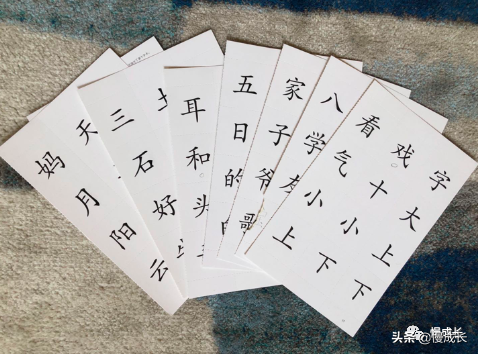 妈 天
月
阳
云
三
石
好
耳
和
头
五
日
的
歌
家
子
爷
八
学
看 戏 字
气 十 大
小 小 上
上 下 下
慢成长
头条 @慢成长